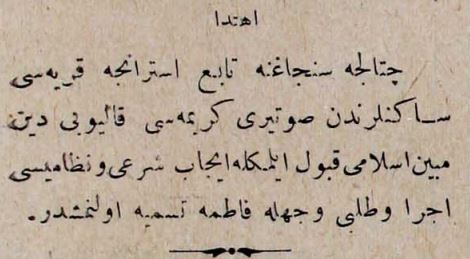 اهتدا
چتالجه سنجاغنه تابع استرانجه قریه‌سی
ساکنلرندن صوتیری کریمه‌سی قالیوبی دین
مبین اسلامی قبول ایلمکله ایجاب شرعی و نظامیسی
اجرا و طلبی وجهله فاطمه تسمیه اولنمشدر.